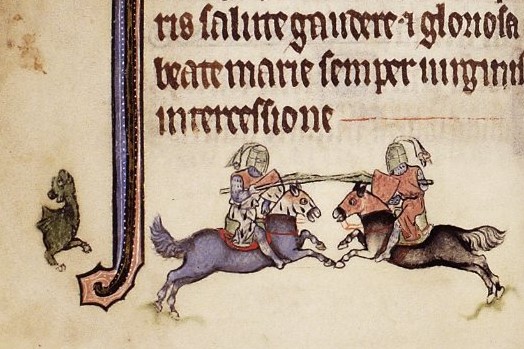 ris salute gaudere ⁊ gloriosa
beate marie semper uirginis
intercessione